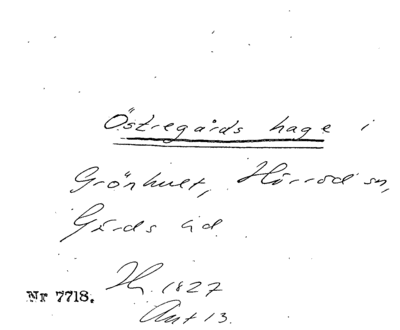 Östregårds hage i
Grönhult, Hörröd sn,
Gärds hd
Hr. 1827
Nr 7718.
Ant 13.